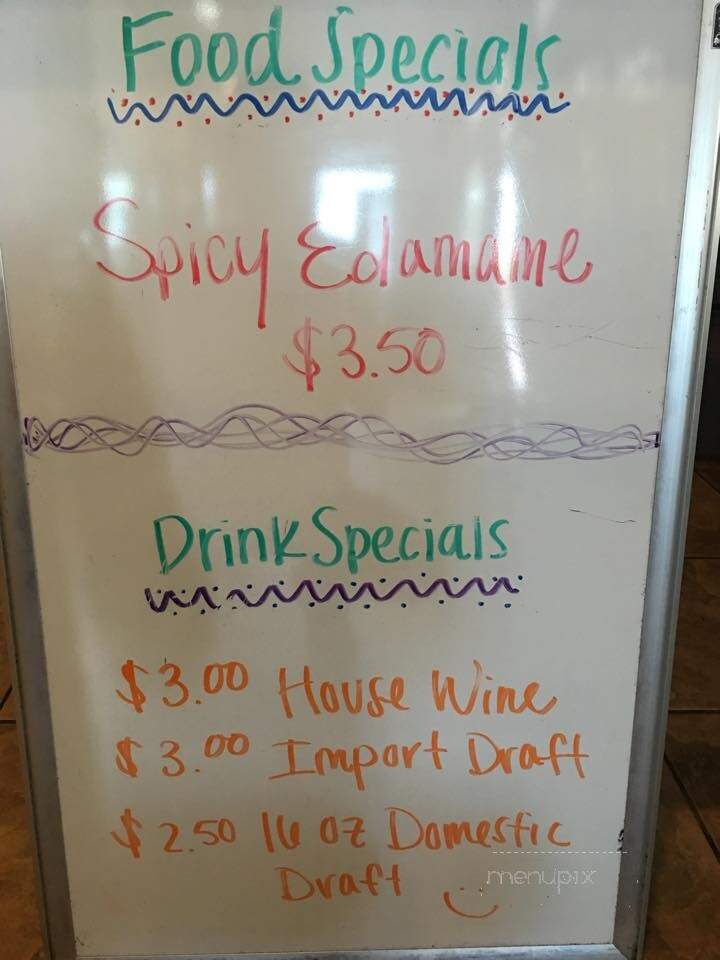 Food Specials
Spicy Edamame
$3.50
Drink Specials
$3.00 House Wine
$3.00 Import Draft
$2.50 16 oz Domestic
Draft
menupix